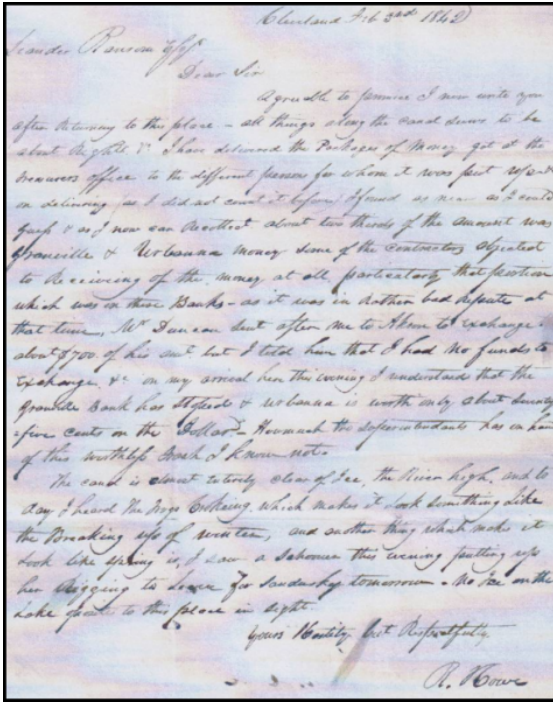 Cleveland Feb 3rd 1842
Leander Ransom Esqr
Dear Sir
Agreeable to promise I now write you
after returning to this place – all things along the canal seems to be
about Right & I have delivered the Packages of Money got at the
Treasurers office to the different person for whom it was put up &
on delivering (as I did not count it before) I found as near as I could
guess & as I now can Recollect about two thirds of the amount was
Granville & Urbanna money some of the contractors objected
to Receiving of the money at all, particularly that portion
which was in these Banks – as it was in Rather bad repute at
that time, Mr Duncan sent after me to Akron to exchange
about $700 of his but I told him that I had No funds to
Exchange, &c on my arrival here this evening I understand that the
Granville Bank has stoped & Urbanna is worth only about seventy
five cents on the Dollar. Howmuch the superintendants has in han
of this worthless trash I know not.
The canal is almost entirely clear of Ice, the River high, and to
day I heard the frogs Croking, which makes it Look something Like
the Breaking up of winter, and another thing which makes it
Look like spring is, I saw a Schooner this evening putting up
her Rigging to Leave for Sandusky tomorrow – No Ice on the
Lake to this place in sight
Yours but Respectfully
R. Howe